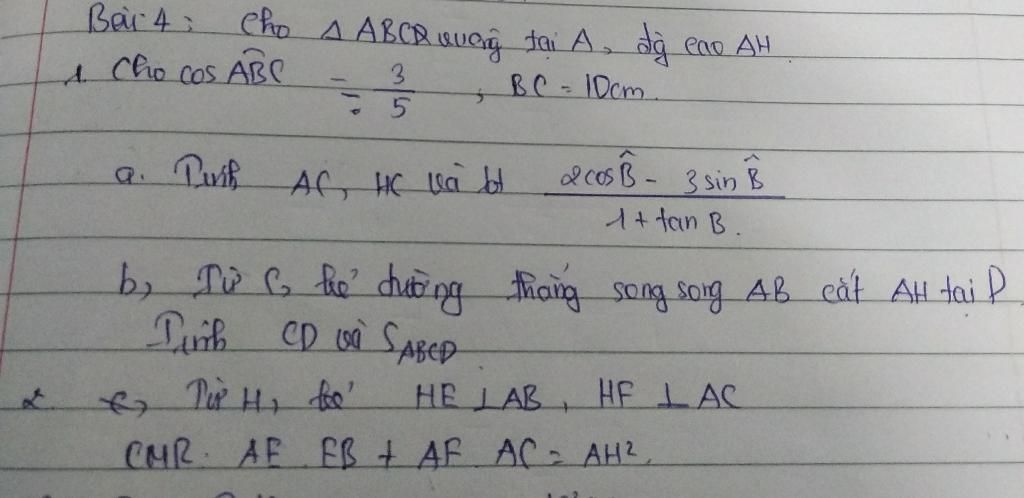 Bài 4: Cho △ ABC vuông tại A, đg cao AH
1. Cho cos ABC = 3/5, BC = 10cm.
a. Tính AC, HC và bt (2cosB̂ - 3 sin B̂)/(1 + tan B).
b, Từ C, kẻ đường thẳng song song AB cắt AH tại D.
Tính CD và S_ABCD
2. c, Từ H, kẻ HE ⊥ AB, HF ⊥ AC
CMR. AE. EB + AF. AC = AH².